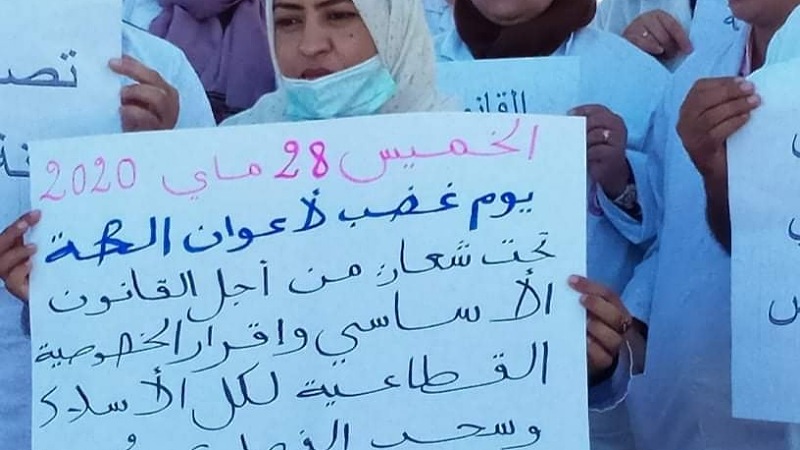 الخميس 28 ماي 2020
يوم غضب لأعوان الصحة
تحت شعار: من أجل القانون
الأساسي وإقرار الخصوصية
القطاعية لكل الأسلاك
القانو
تص